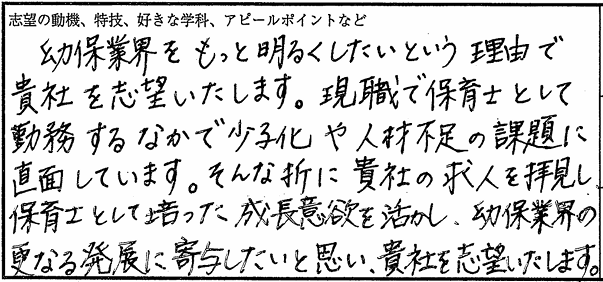 志望の動機、特技、好きな学科、アピールポイントなど
幼保業界をもっと明るくしたいという理由で
貴社を志望いたします。現職で保育士として
勤務するなかで少子化や人材不足の課題に
直面しています。そんな折に貴社の求人を拝見し、
保育士として培った成長意欲を活かし、幼保業界の
更なる発展に寄与したいと思い、貴社を志望いたします。